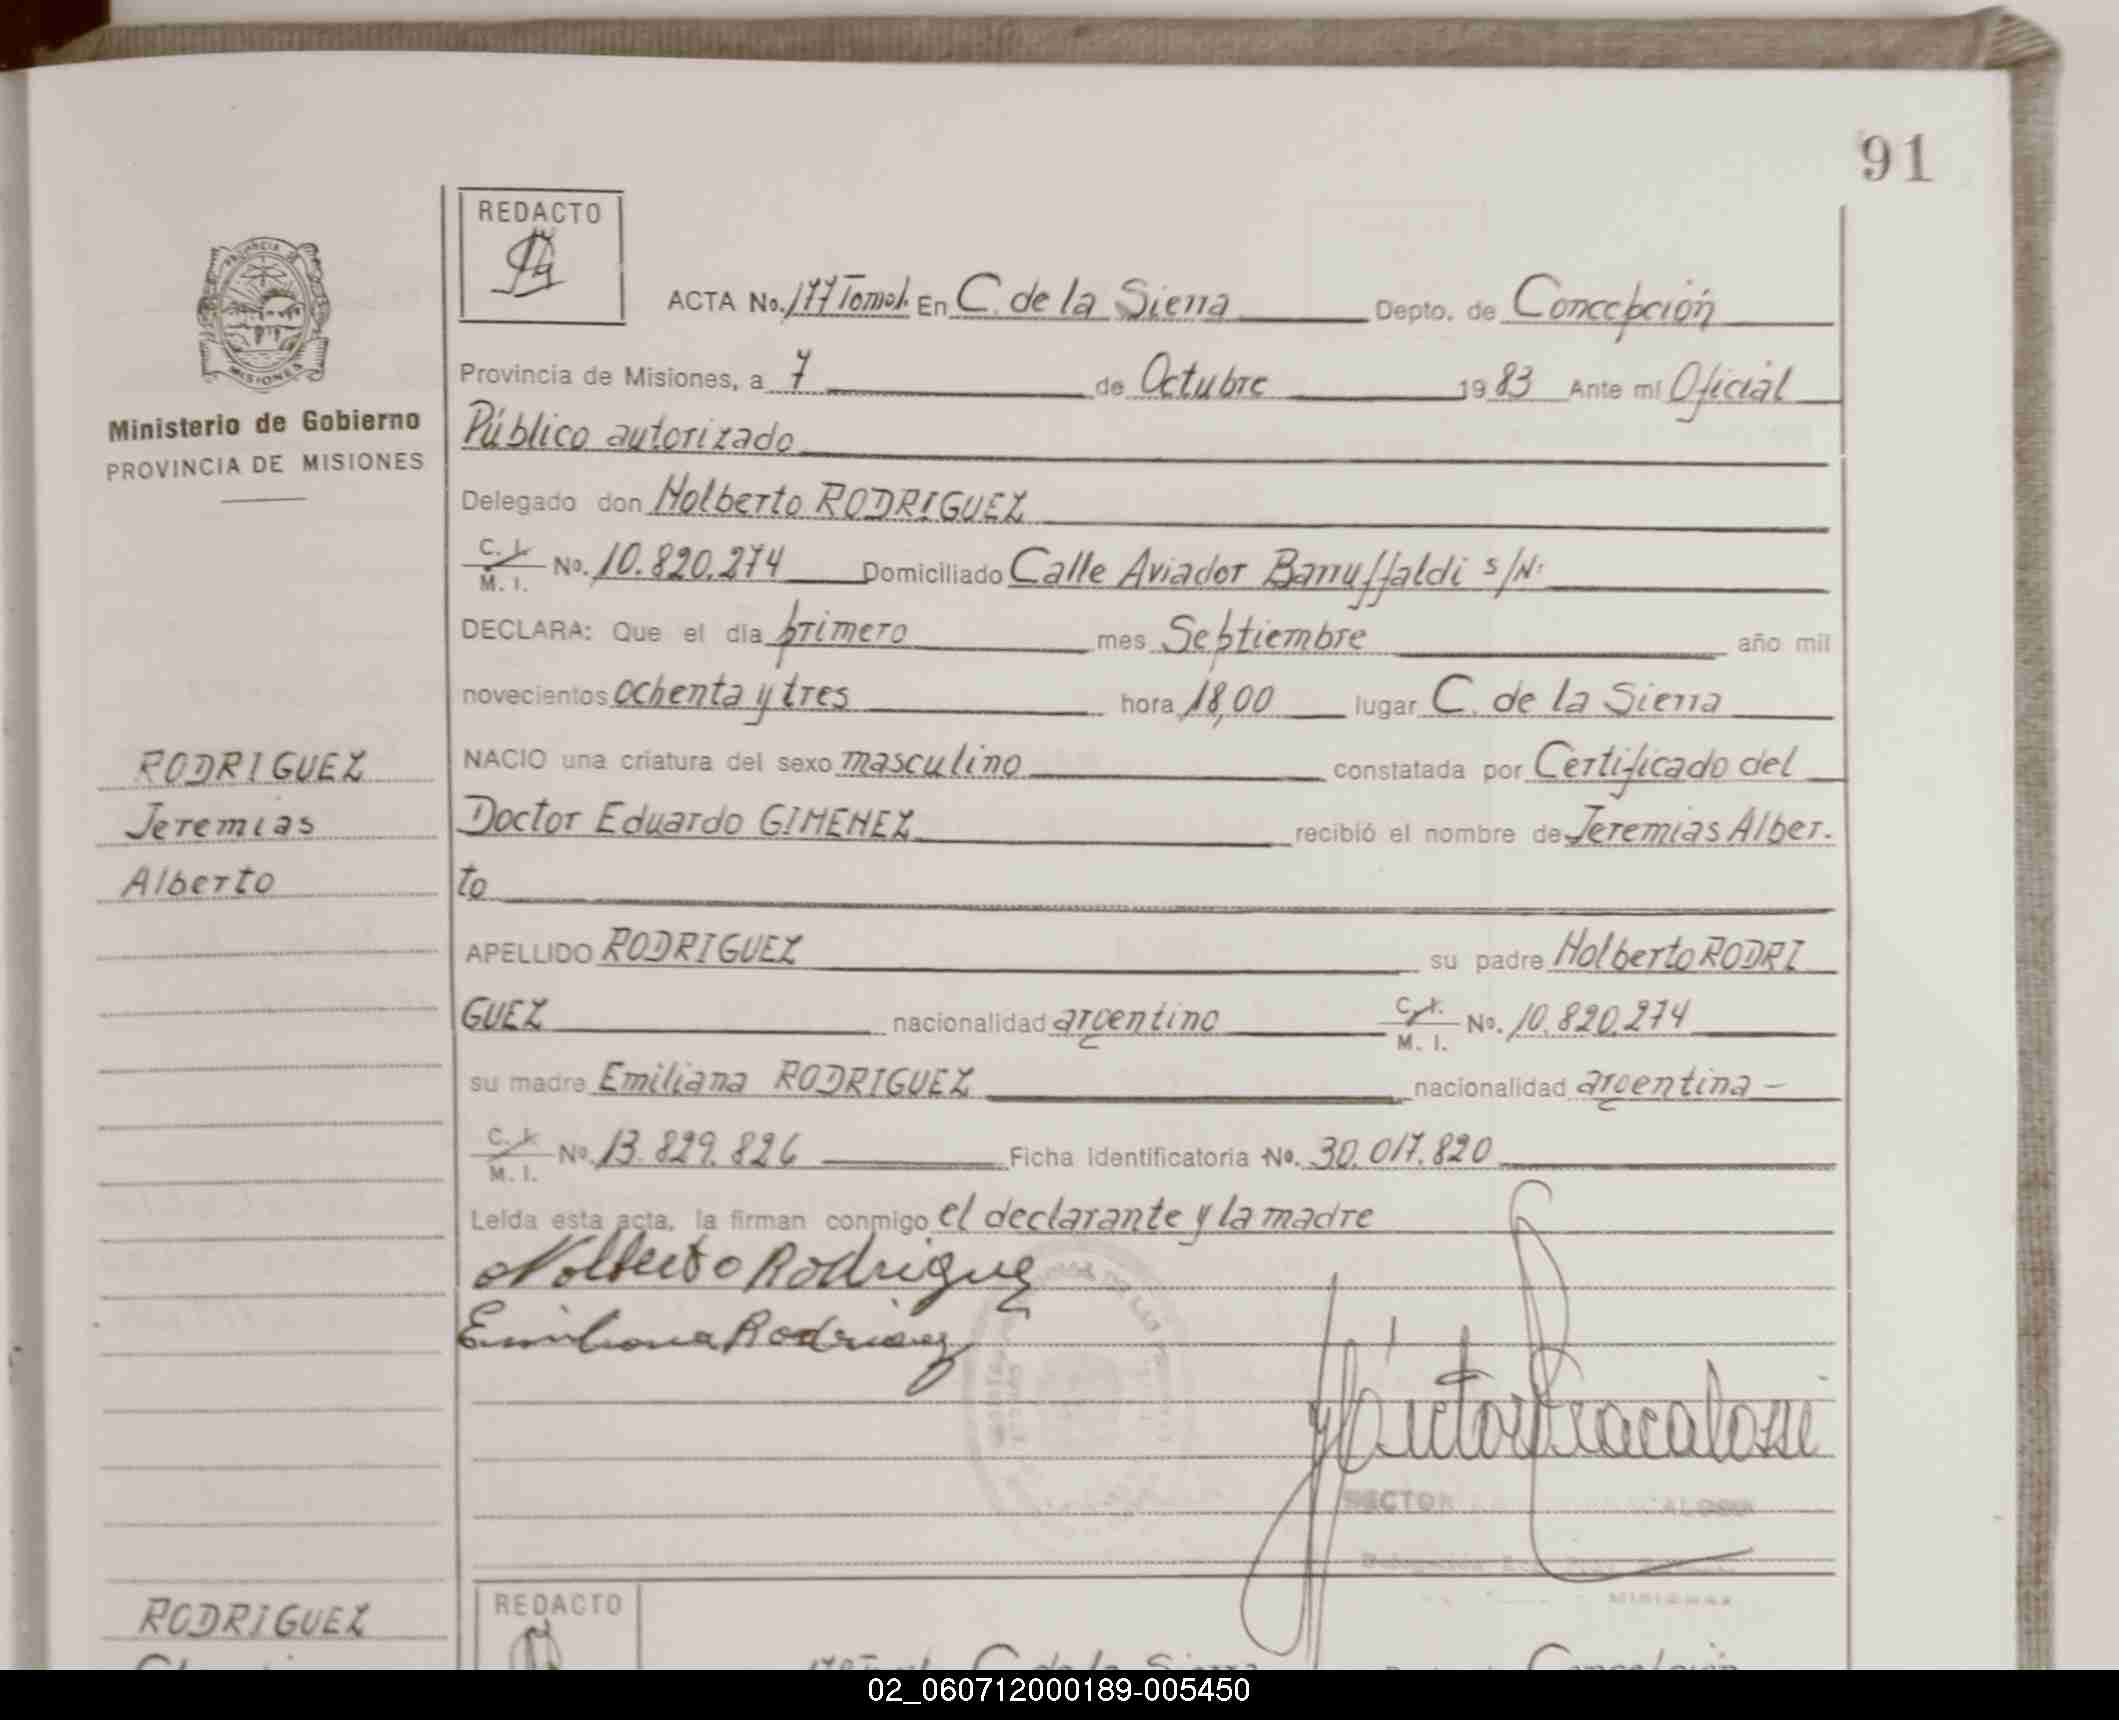 91
REDACTO
PROVINCIA DE
MISIONES
Ministerio de Gobierno
PROVINCIA DE MISIONES
ACTA No. 177 Tomo I. En C. de la Sierra Depto. de Concepción
Provincia de Misiones, a 7 de Octubre 1983 Ante mí Oficial
Público autorizado
Delegado don Nolberto RODRIGUEZ
C. I. / M. I. No. 10.820.274 Domiciliado Calle Aviador Barruffaldi s/N:
DECLARA: Que el día primero mes Septiembre año mil
novecientos ochenta y tres hora 18,00 lugar C. de la Sierra
RODRIGUEZ
NACIO una criatura del sexo masculino constatada por Certificado del
Jeremias
Doctor Eduardo GIMENEZ recibió el nombre de Jeremias Alber-
Alberto
to
APELLIDO RODRIGUEZ su padre Nolberto RODRI
GUEZ nacionalidad argentino C. I. / M. I. No. 10.820.274
su madre Emiliana RODRIGUEZ nacionalidad argentina -
C. I. / M. I. No. 13.829.826 Ficha Identificatoria No. 30.017.820
Leída esta acta, la firman conmigo el declarante y la madre
Nolberto Rodriguez
Emiliana Rodriguez
RODRIGUEZ
REDACTO
02_060712000189-005450